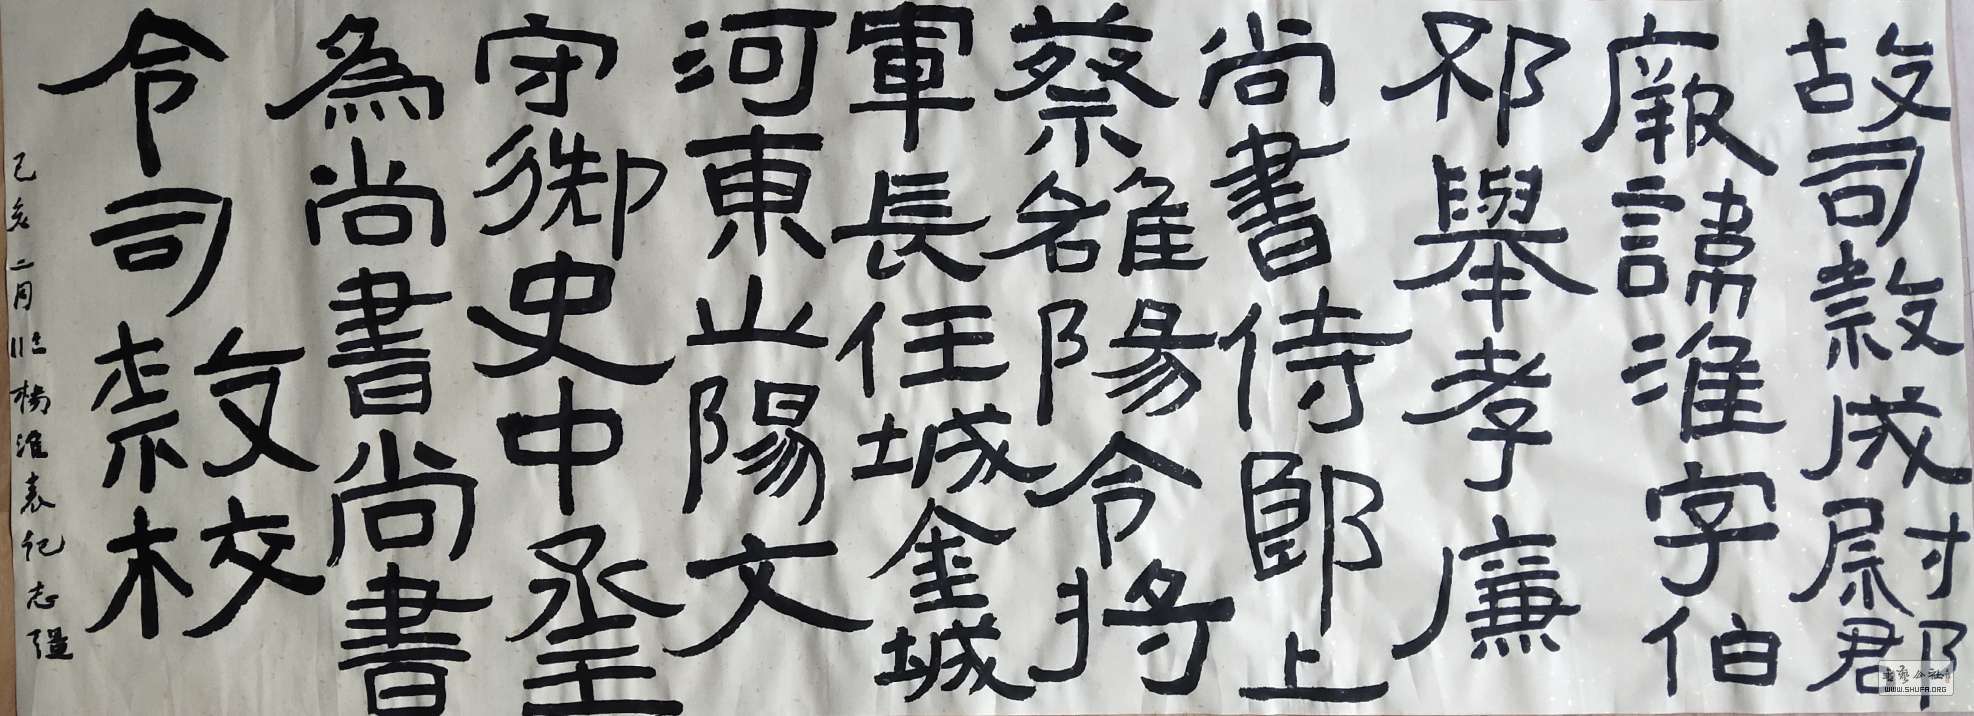 故司隸成尉郡
厥諱淮字伯
邳舉孝廉
尚書侍郎上
蔡雒陽令將
軍長任城金城
河東山陽文
守御史中丞
為尚書尚書
令司隸校
己亥二月临楊淮表记志彊
书艺公社
WWW.SHUFA.ORG